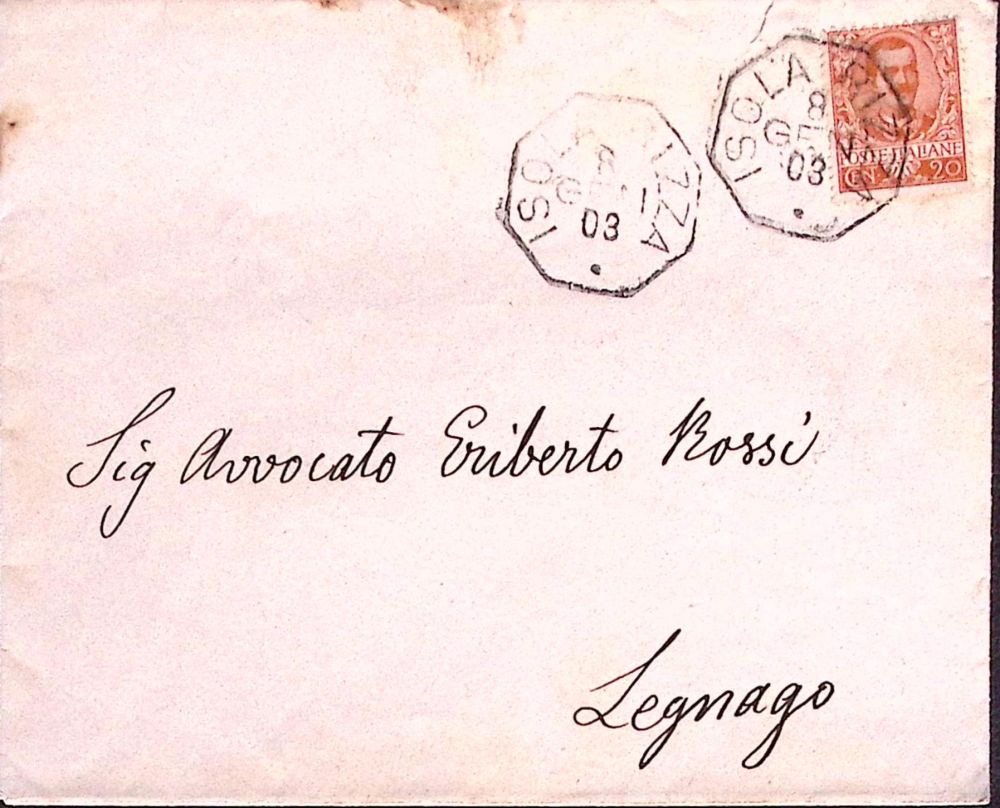 ISOLA RIZZA
8
GEN
03
ISOLA RIZZA
8
GEN
03
POSTE ITALIANE
CENT. 20
Sig Avvocato Eriberto Rossi
Legnago